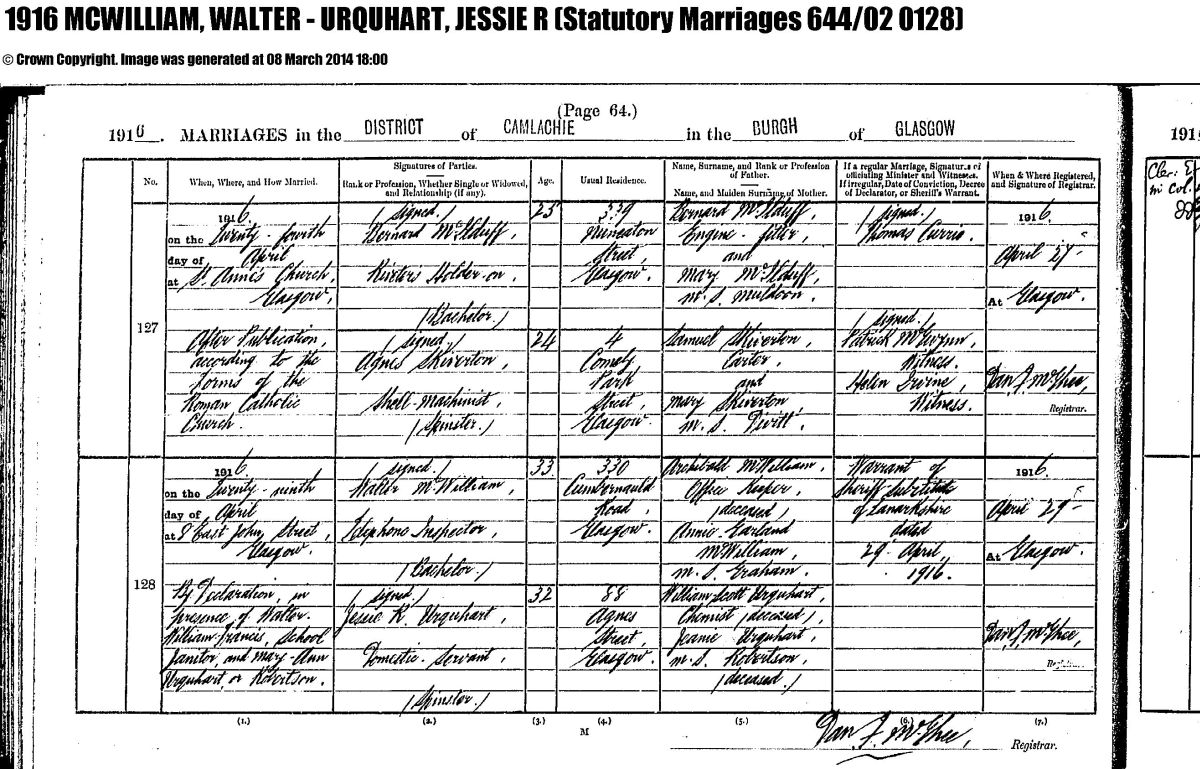 1916 MCWILLIAM, WALTER - URQUHART, JESSIE R (Statutory Marriages 644/02 0128)
© Crown Copyright. Image was generated at 08 March 2014 18:00
(Page 64.)
1916. MARRIAGES in the DISTRICT of CAMLACHIE in the BURGH of GLASGOW
No.
When, Where, and How Married.
Signatures of Parties.
Rank or Profession, Whether Single or Widowed, and Relationship (if any).
Age.
Usual Residence.
Name, Surname, and Rank or Profession of Father.
Name, and Maiden Surname of Mother.
If a regular Marriage, Signatures of officiating Minister and Witnesses. If irregular, Date of Conviction, Decree of Declarator, or Sheriff's Warrant.
When & Where Registered, and Signature of Registrar.
127
1916.
on the Twenty-fourth
day of April
at St. Anne's Church,
Glasgow.
After Publication,
according to the
forms of the
Roman Catholic
Church.
(signed.)
Bernard
Holder-on,
(Bachelor.)
(signed.)
Agnes Skiverton
Shell-Machinist,
(Spinster.)
25
24
339
Nuneaton
Street,
Glasgow.
4
Comely
Park
Street,
Glasgow.
Bernard
Engine-fitter,
and
Mary
m.s. Muldoon.
Samuel Skiverton,
Carter,
and
Mary Skiverton
m.s.
(signed.)
Thomas
(signed.)
Patrick
Witness.
Helen Irvine,
Witness.
1916.
April 27
At Glasgow.
Dan. J. McGhee,
Registrar.
128
1916.
on the Twenty-ninth
day of April
at 9 East John Street,
Glasgow.
By Declaration, in
presence of Walter
William Francis, School
Janitor, and Mary-Ann
Urquhart, or Robertson.
(signed.)
Walter McWilliam,
Telephone Inspector,
(Bachelor.)
(signed.)
Jessie R. Urquhart,
Domestic Servant,
(Spinster.)
33
32
330
Cumbernauld
Road,
Glasgow.
88
Agnes
Street,
Glasgow.
Archibald McWilliam,
Office Keeper,
(deceased)
Annie Garland
McWilliam,
m.s. Graham.
William Scott Urquhart,
Chemist (deceased)
Jeanie Urquhart,
m.s. Robertson,
(deceased.)
Warrant of
Sheriff-Substitute
of Lanarkshire
dated
29 April,
1916.
1916.
April 29
At Glasgow.
Dan. J. McGhee,
Registrar.
(1.) (2.) (3.) (4.) (5.) (6.) (7.)
M
Dan. J. McGhee, Registrar.
191
in Col.